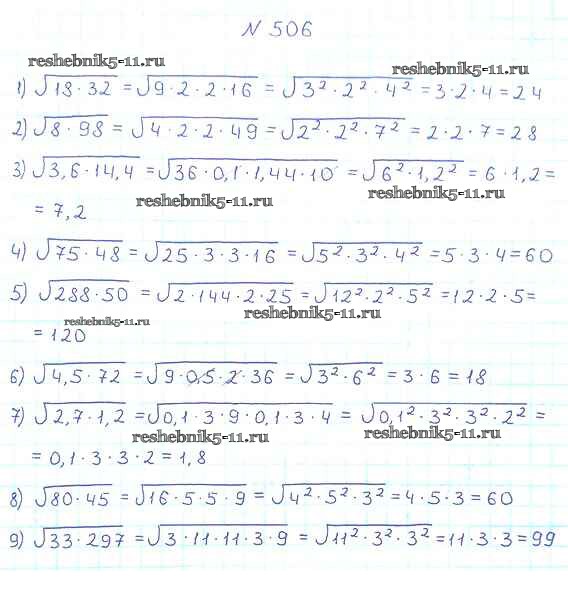 № 506
reshebnik5-11.ru
reshebnik5-11.ru
1) √18·32 = √9·2·2·16 = √3²·2²·4² = 3·2·4 = 24
2) √8·98 = √4·2·2·49 = √2²·2²·7² = 2·2·7 = 28
3) √3,6·14,4 = √36·0,1·1,44·10 = √6²·1,2² = 6·1,2 =
reshebnik5-11.ru
reshebnik5-11.ru
= 7,2
4) √75·48 = √25·3·3·16 = √5²·3²·4² = 5·3·4 = 60
5) √288·50 = √2·144·2·25 = √12²·2²·5² = 12·2·5 =
reshebnik5-11.ru
reshebnik5-11.ru
= 120
6) √4,5·72 = √9·0,5·2·36 = √3²·6² = 3·6 = 18
7) √2,7·1,2 = √0,1·3·9·0,1·3·4 = √0,1²·3²·3²·2² =
reshebnik5-11.ru
reshebnik5-11.ru
= 0,1·3·3·2 = 1,8
8) √80·45 = √16·5·5·9 = √4²·5²·3² = 4·5·3 = 60
9) √33·297 = √3·11·11·3·9 = √11²·3²·3² = 11·3·3 = 99